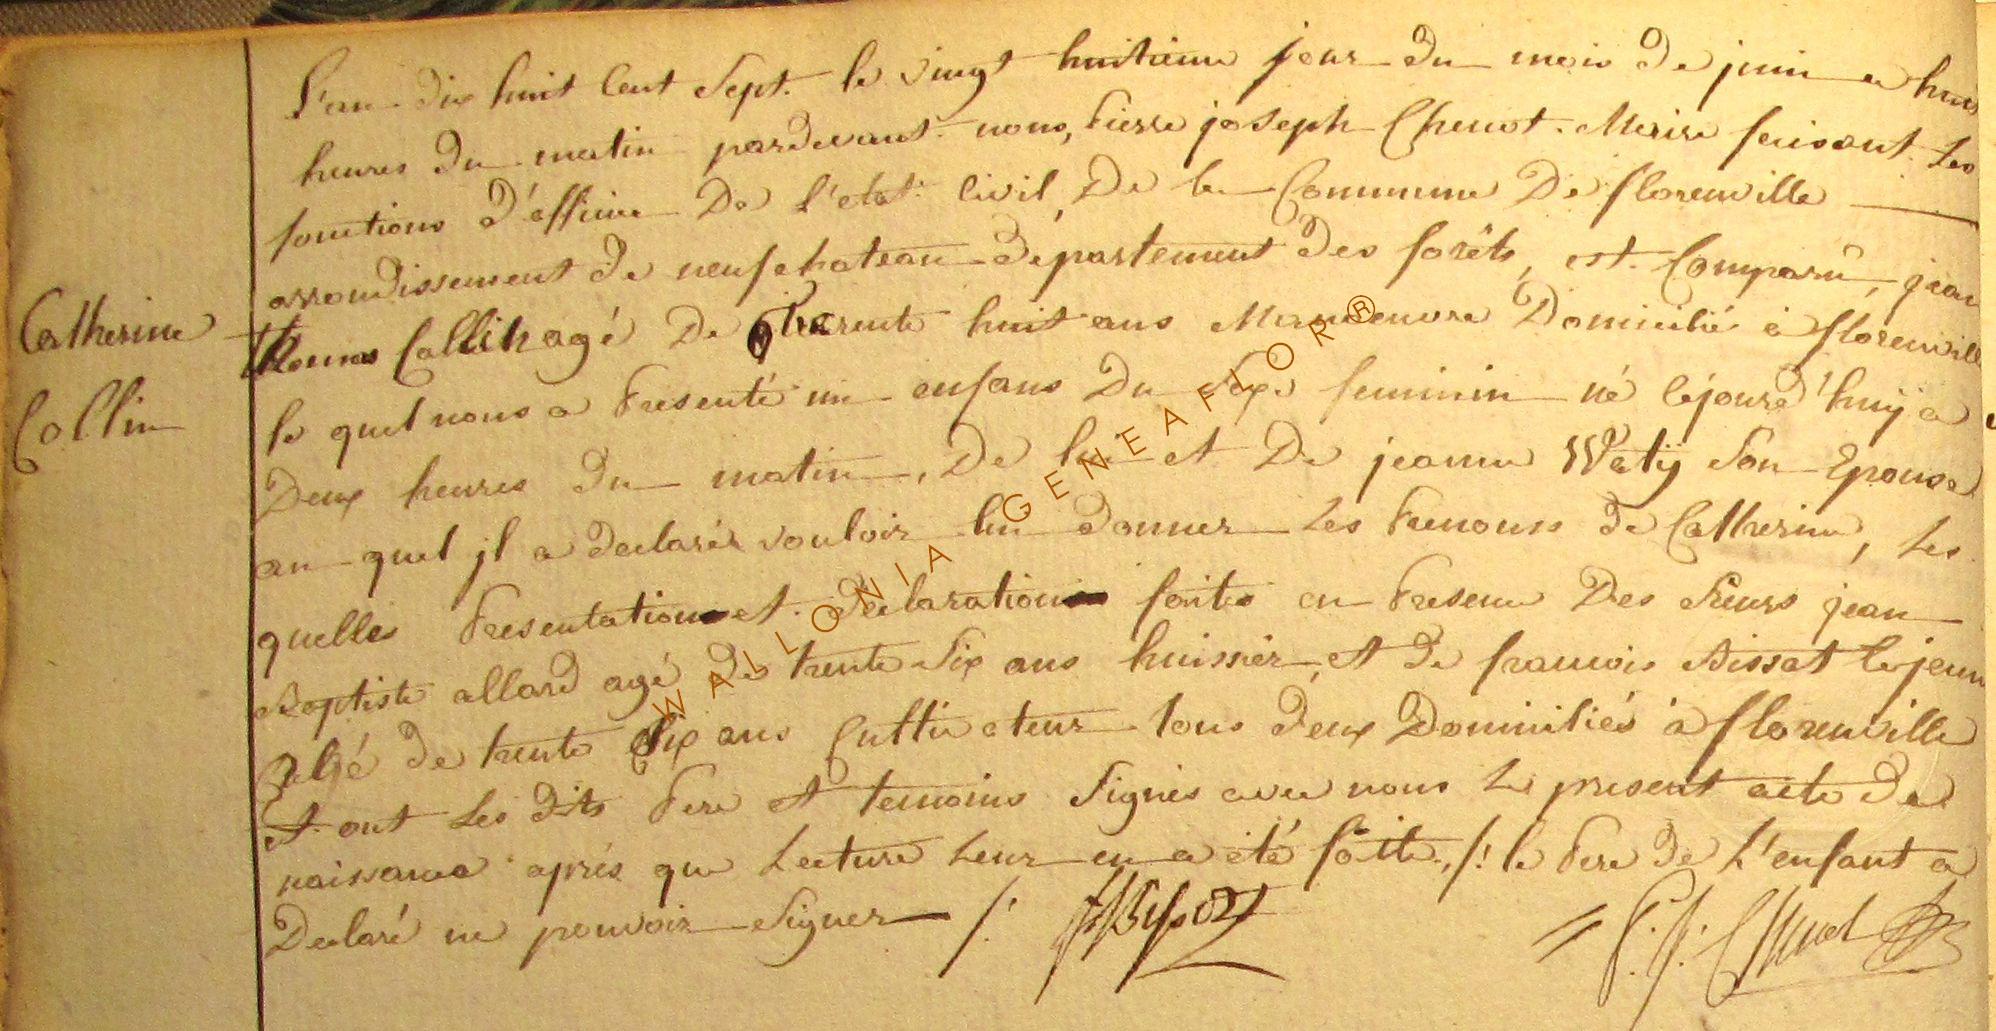 L'an dix huit Cent Sept. le vingt huitieme jour du mois de juin a huit
heures du matin pardevant nous, Pierre joseph Chenot. Maire faisant les
fonctions d'officier De l'etat Civil, De la Commune De florenville
arrondissement de neufchateau département des forêts, est Comparû, jean
Catherine
Collin
thomas Collin agé De quarente huit ans Manoeuvre Domicilié à florenville
le quel nous a Presenté un enfans Du Sexe feminin né cejourd'huij a
Deux heures du matin, De lui et De jeanne Watij son Epouse
au quel jl a declarér vouloir lui donner Les Prenoms de Catherine, Les
quelles Presentation et declaration faites en Presence Des Sieurs jean
Baptiste allard agé de trente Six ans huissier, et de francois Bissot le jeune
agé de trente Six ans Cultivateur tous deux Domiciliés à florenville
et ont Les dits Pere et temoins Signés avec nous Le present acte de
naissance aprés que Lecture Leur en a été faitte, /: le Pere de L'enfant a
Declaré ne pouvoir Signer /:
P. J. Chenot
WALLONIA GENEAFLOR ®